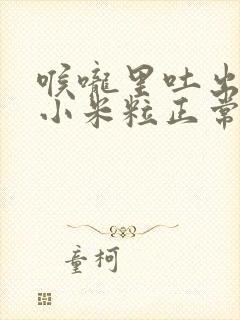 喉咙里吐出
小米粒正常
童柯